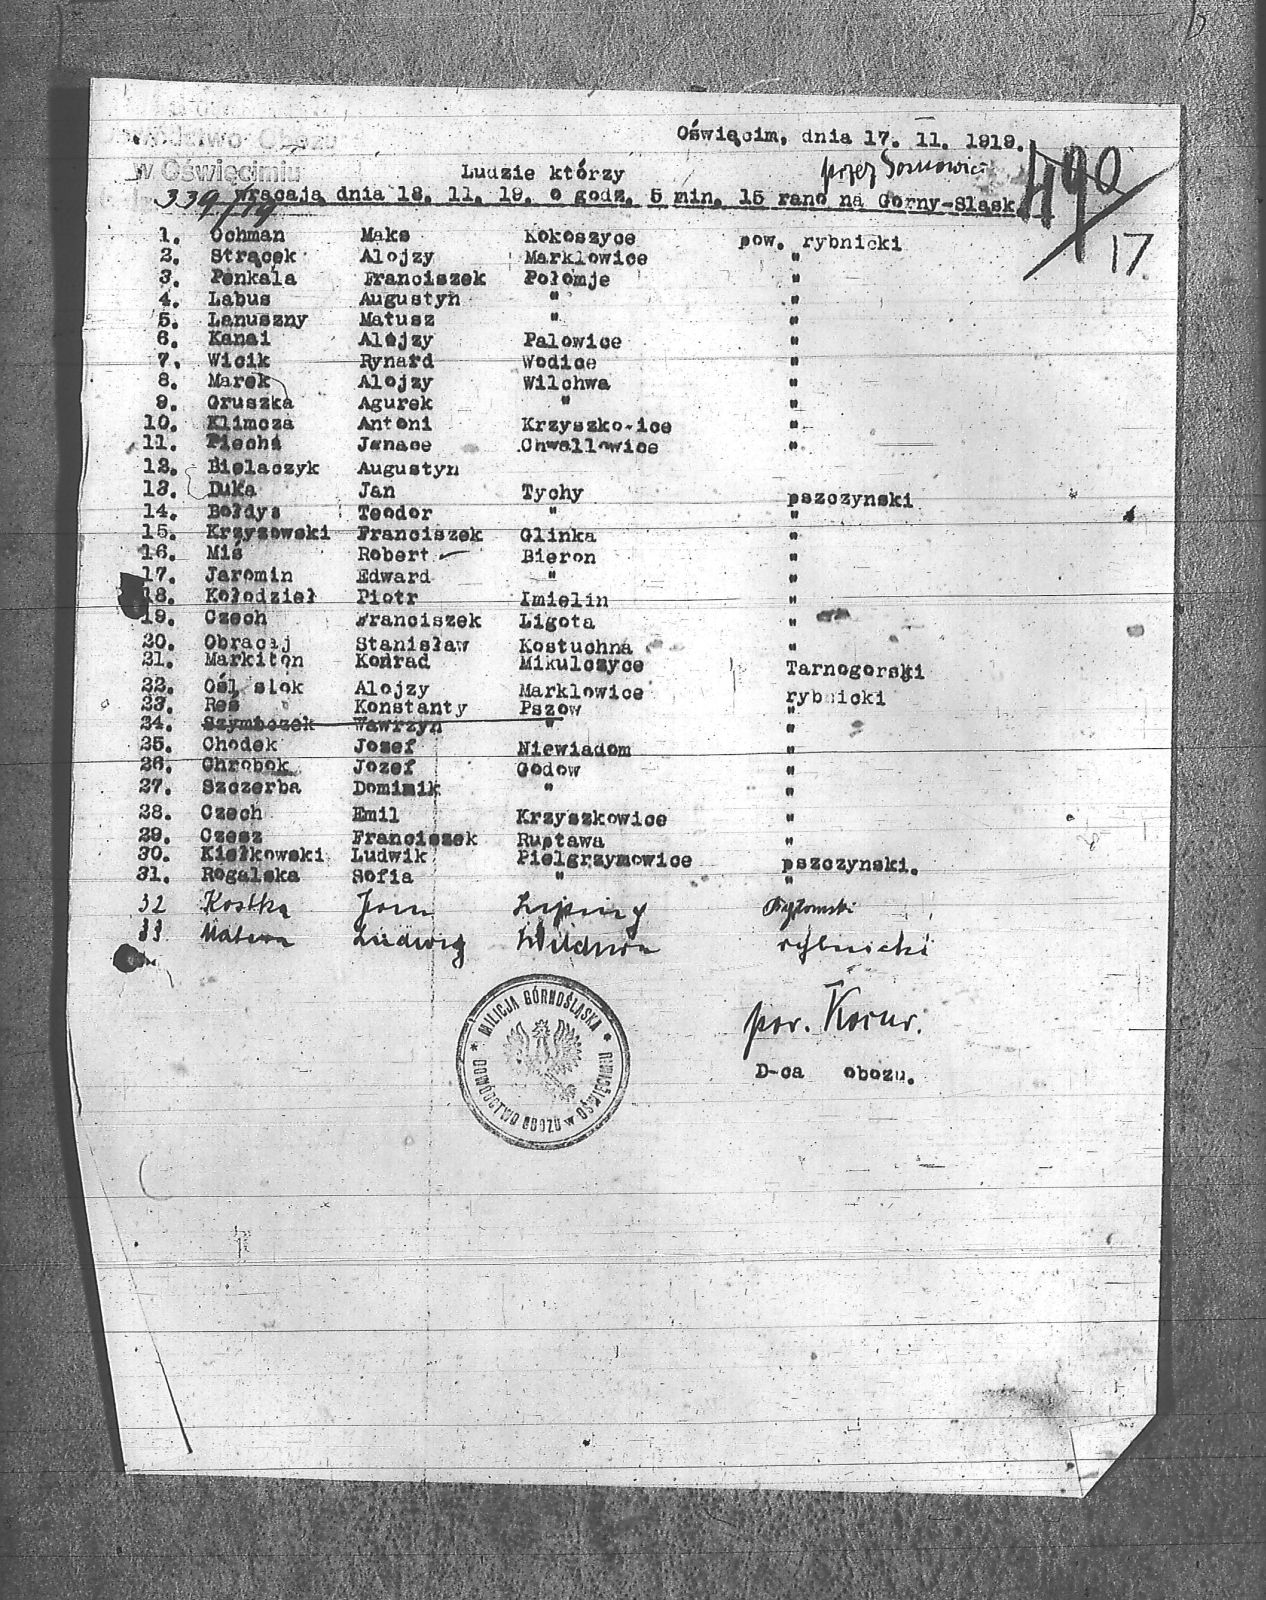 Oświęcim, dnia 17. 11. 1919.
Dowództwo Obozu
w Oświęcimiu
339/19
Ludzie którzy
przez Sosnowiec
wracają dnia 18. 11. 19. o godz. 5 min. 15 rano na Gorny-Sląsk
490
17
1. Ochman Maks Kokoszyce pow. rybnicki
2. Strącek Alojzy Marklowice "
3. Penkala Franciszek Połomje "
4. Labus Augustyn " "
5. Lanuszny Matusz " "
6. Kanai Alojzy Palowice "
7. Wicik Rynard Wodice "
8. Marek Alojzy Wilchwa "
9. Gruszka Agurek " "
10. Klimcza Antoni Krzyszkowice "
11. Piecha Jgnace Chwallowice "
12. Bielaczyk Augustyn
13. Duka Jan Tychy pszczynski
14. Bołdys Teodor " "
15. Krzysowski Franciszek Glinka "
16. Miś Robert Bieron "
17. Jaromin Edward " "
18. Kołodzieł Piotr Imielin "
19. Czech Franciszek Ligota "
20. Obracaj Stanisław Kostuchna "
21. Markiton Konrad Mikulczyce Tarnogorski
22. Alojzy Marklowice rybnicki
23. Reś Konstanty Pszow "
24. Szymbozek Wawrzyn " "
25. Chodek Jozef Niewiadom "
26. Chrobok Jozef Godow "
27. Szczerba Dominik " "
28. Czech Emil Krzyszkowice "
29. Czesz Franciszek Ruptawa "
30. Kiełkowski Ludwik Pielgrzymowice pszczynski.
31. Rogalska Sofia " "
32 Kostka Jan Lipiny
33 Ludwig rybnicki
MILICJA GÓRNOŚLĄSKA
* DOWÓDZTWO OBOZU w OŚWIĘCIMIU *
por. Kocur.
D-ca obozu.